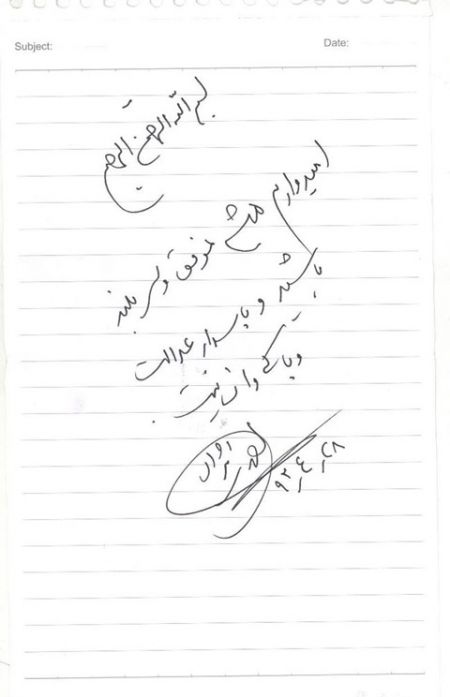 Subject: Date:
بسم الله الرحمن الرحیم
امیدوارم همیشه موفق و سربلند
باشید و پاسدار عدالت
و پاکی و انسانیت.
۹۳/۴/۲۸